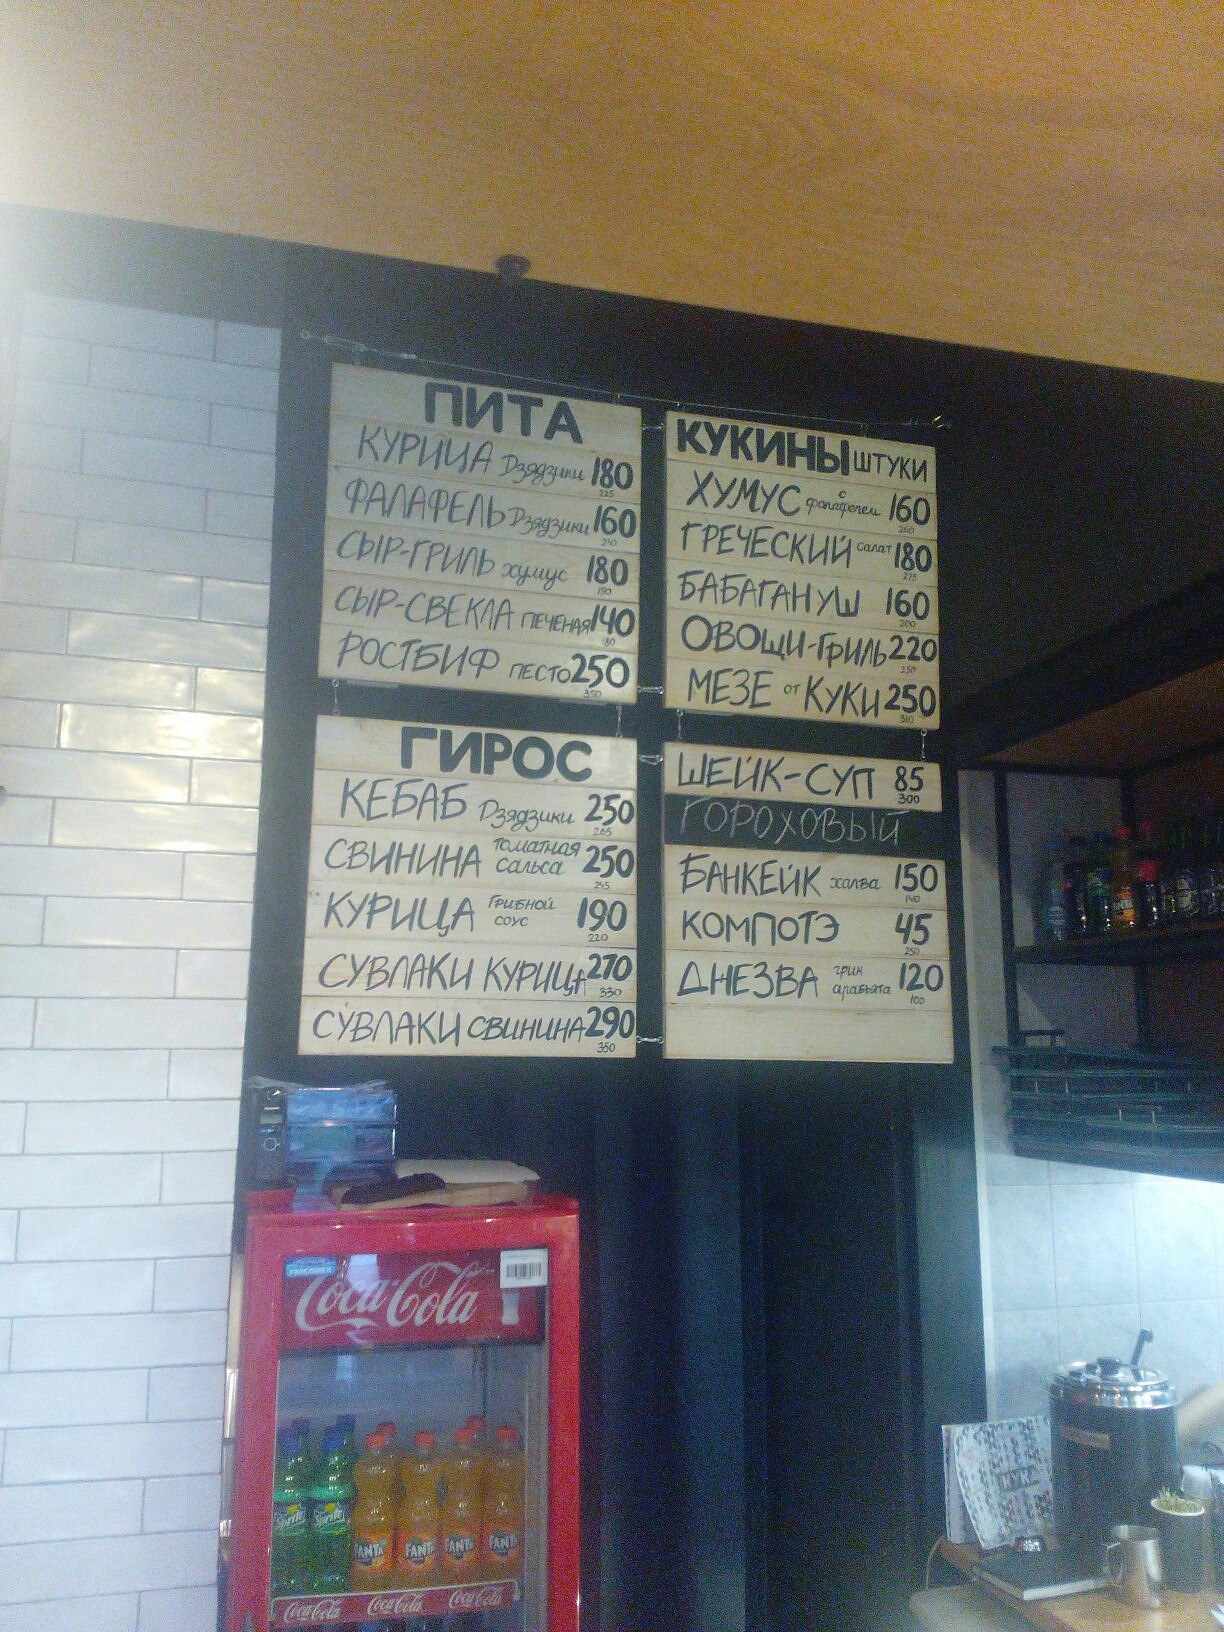 ПИТА
КУРИЦА Дзядзики 180
225
ФАЛАФЕЛЬ Дзядзики 160
230
СЫР-ГРИЛЬ хумус 180
190
СЫР-СВЕКЛА ПЕЧЕНАЯ 140
180
РОСТБИФ ПЕСТО 250
350
ГИРОС
КЕБАБ Дзядзики 250
265
СВИНИНА томатная сальса 250
245
КУРИЦА Грибной соус 190
220
СУВЛАКИ КУРИЦА 270
330
СУВЛАКИ СВИНИНА 290
350
КУКИНЫ ШТУКИ
ХУМУС с фалафелем 160
260
ГРЕЧЕСКИЙ Салат 180
275
БАБАГАНУШ 160
200
ОВОЩИ-ГРИЛЬ 220
250
МЕЗЕ от КУКИ 250
310
ШЕЙК-СУП 85
300
ГОРОХОВЫЙ
БАНКЕЙК халва 150
140
КОМПОТЭ 45
250
ДНЕЗВА грик арабъята 120
100
Coca-Cola
Sprite
FANTA FANTA FANTA FANTA
Coca-Cola Coca-Cola Coca-Cola